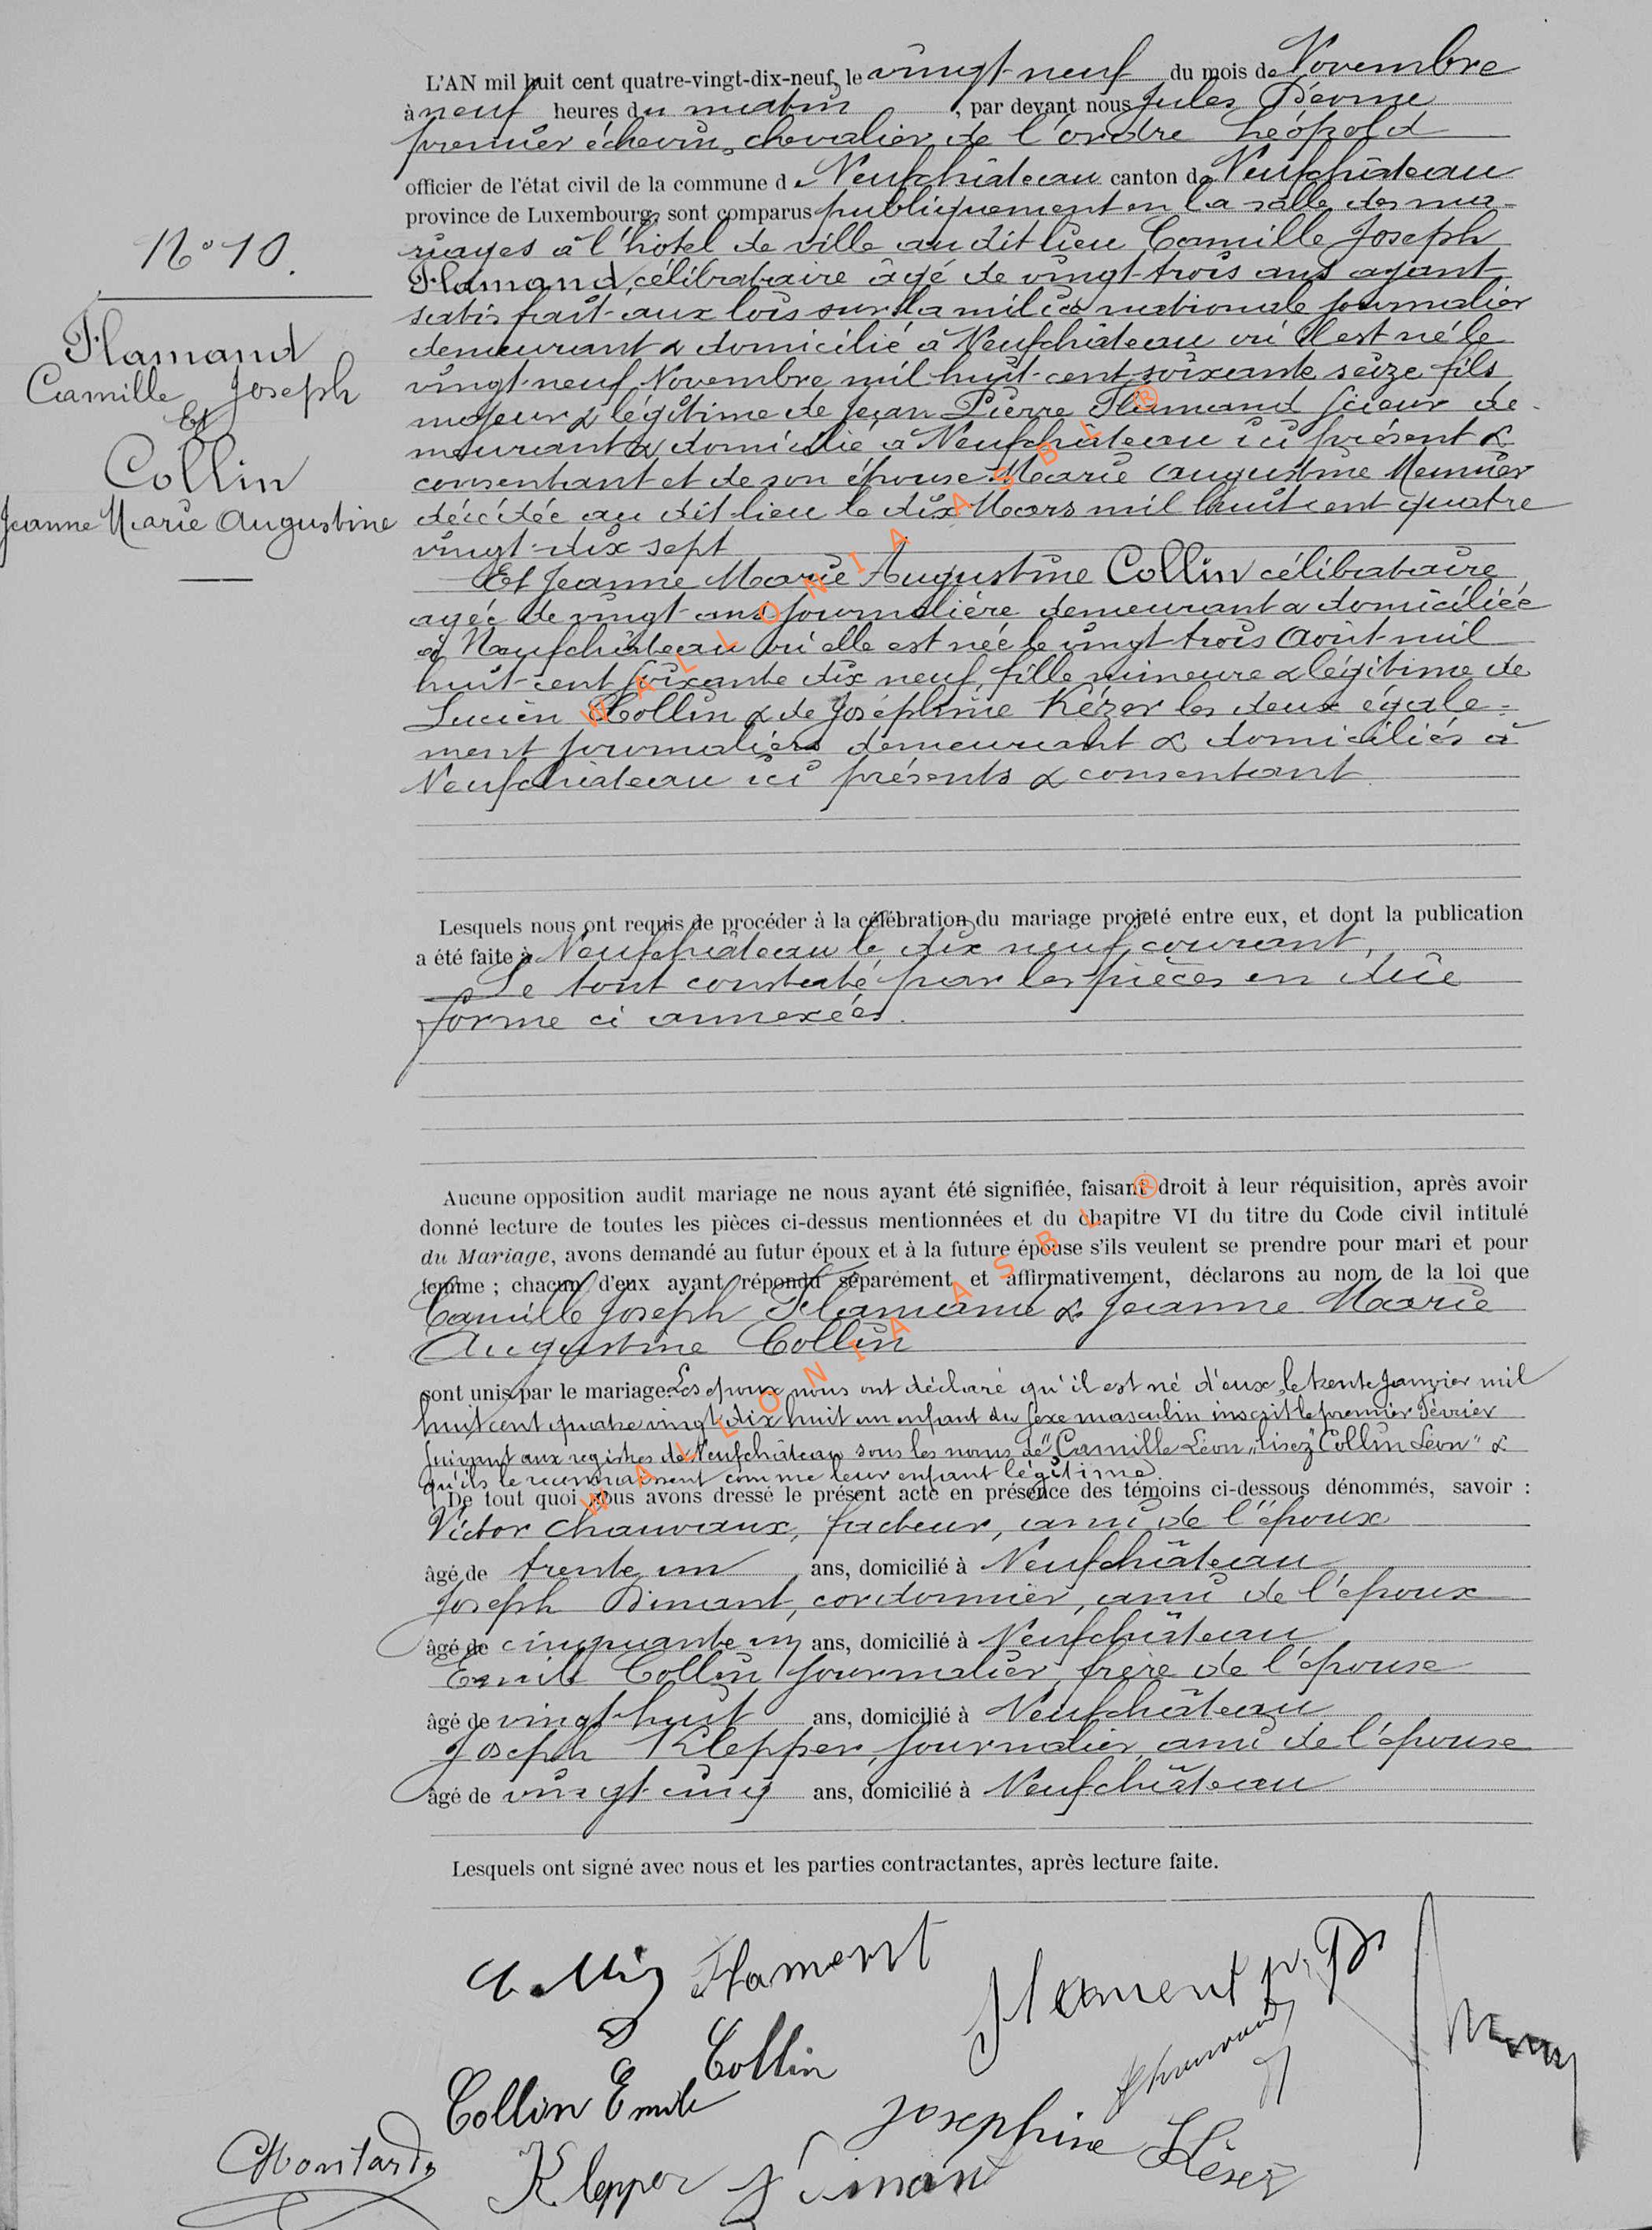 L'AN mil huit cent quatre-vingt-dix-neuf, le vingt-neuf du mois de Novembre
à neuf heures du matin, par devant nous Jules
premier échevin, chevalier de l'ordre Léopold
officier de l'état civil de la commune de Neufchâteau canton de Neufchâteau
province de Luxembourg, sont comparus publiquement en la salle des ma-
riages à l'hôtel de ville audit lieu Camille Joseph
Flamand, célibataire âgé de vingt-trois ans ayant
satisfait aux lois sur la milice nationale journalier
demeurant & domicilié à Neufchâteau où il est né le
vingt-neuf Novembre mil huit-cent soixante seize fils
majeur & légitime de Jean Pierre Flamand scieur de-
meurant & domicilié à Neufchâteau ici présent &
consentant et de son épouse Marie Augustine Meunier
décédée au dit lieu le dix Mars mil huit cent quatre
vingt-dix sept
Et Jeanne Marie Augustine Collin célibataire
agée de vingt ans journalière demeurant & domiciliée
à Neufchâteau où elle est née le vingt-trois Août mil
huit-cent soixante dix neuf, fille mineure & légitime de
Lucien Collin & de Joséphine Kézer les deux égale-
ment journaliers demeurant & domiciliés à
Neufchâteau ici présents & consentant
N° 10.
Flamand
Camille Joseph
Et
Collin
Jeanne Marie Augustine
Lesquels nous ont requis de procéder à la célébration du mariage projeté entre eux, et dont la publication
a été faite à Neufchâteau le dix neuf courant.
Le tout constaté par les pièces en due
forme ci annexées.
Aucune opposition audit mariage ne nous ayant été signifiée, faisant droit à leur réquisition, après avoir
donné lecture de toutes les pièces ci-dessus mentionnées et du chapitre VI du titre du Code civil intitulé
du Mariage, avons demandé au futur époux et à la future épouse s'ils veulent se prendre pour mari et pour
femme ; chacun d'eux ayant répondu séparément et affirmativement, déclarons au nom de la loi que
Camille Joseph Flamand & Jeanne Marie
Augustine Collin
sont unis par le mariage. Les époux nous ont déclaré qu'il est né d'eux, le trente Janvier mil
huit cent quatre vingt dix huit un enfant du sexe masculin inscrit le premier Février
suivant aux registres de Neufchâteau sous les noms de "Camille Léon" lisez "Collin Léon" &
qu'ils le reconnaissent comme leur enfant légitime.
De tout quoi nous avons dressé le présent acte en présence des témoins ci-dessous dénommés, savoir :
Victor Chauvaux, facteur, ami de l'époux
âgé de trente un ans, domicilié à Neufchâteau
Joseph Dinant, cordonnier, ami de l'époux
âgé de cinquante un ans, domicilié à Neufchâteau
Emile Collin journalier, frère de l'épouse
âgé de vingt-huit ans, domicilié à Neufchâteau
Joseph Klepper, journalier, ami de l'épouse
âgé de vingt cinq ans, domicilié à Neufchâteau
Lesquels ont signé avec nous et les parties contractantes, après lecture faite.
Collin Flament
Flament
Collin
Collin Emile
Josephine Késer
Klepper
WALLONIA ASBL ®
WALLONIA ASBL ®